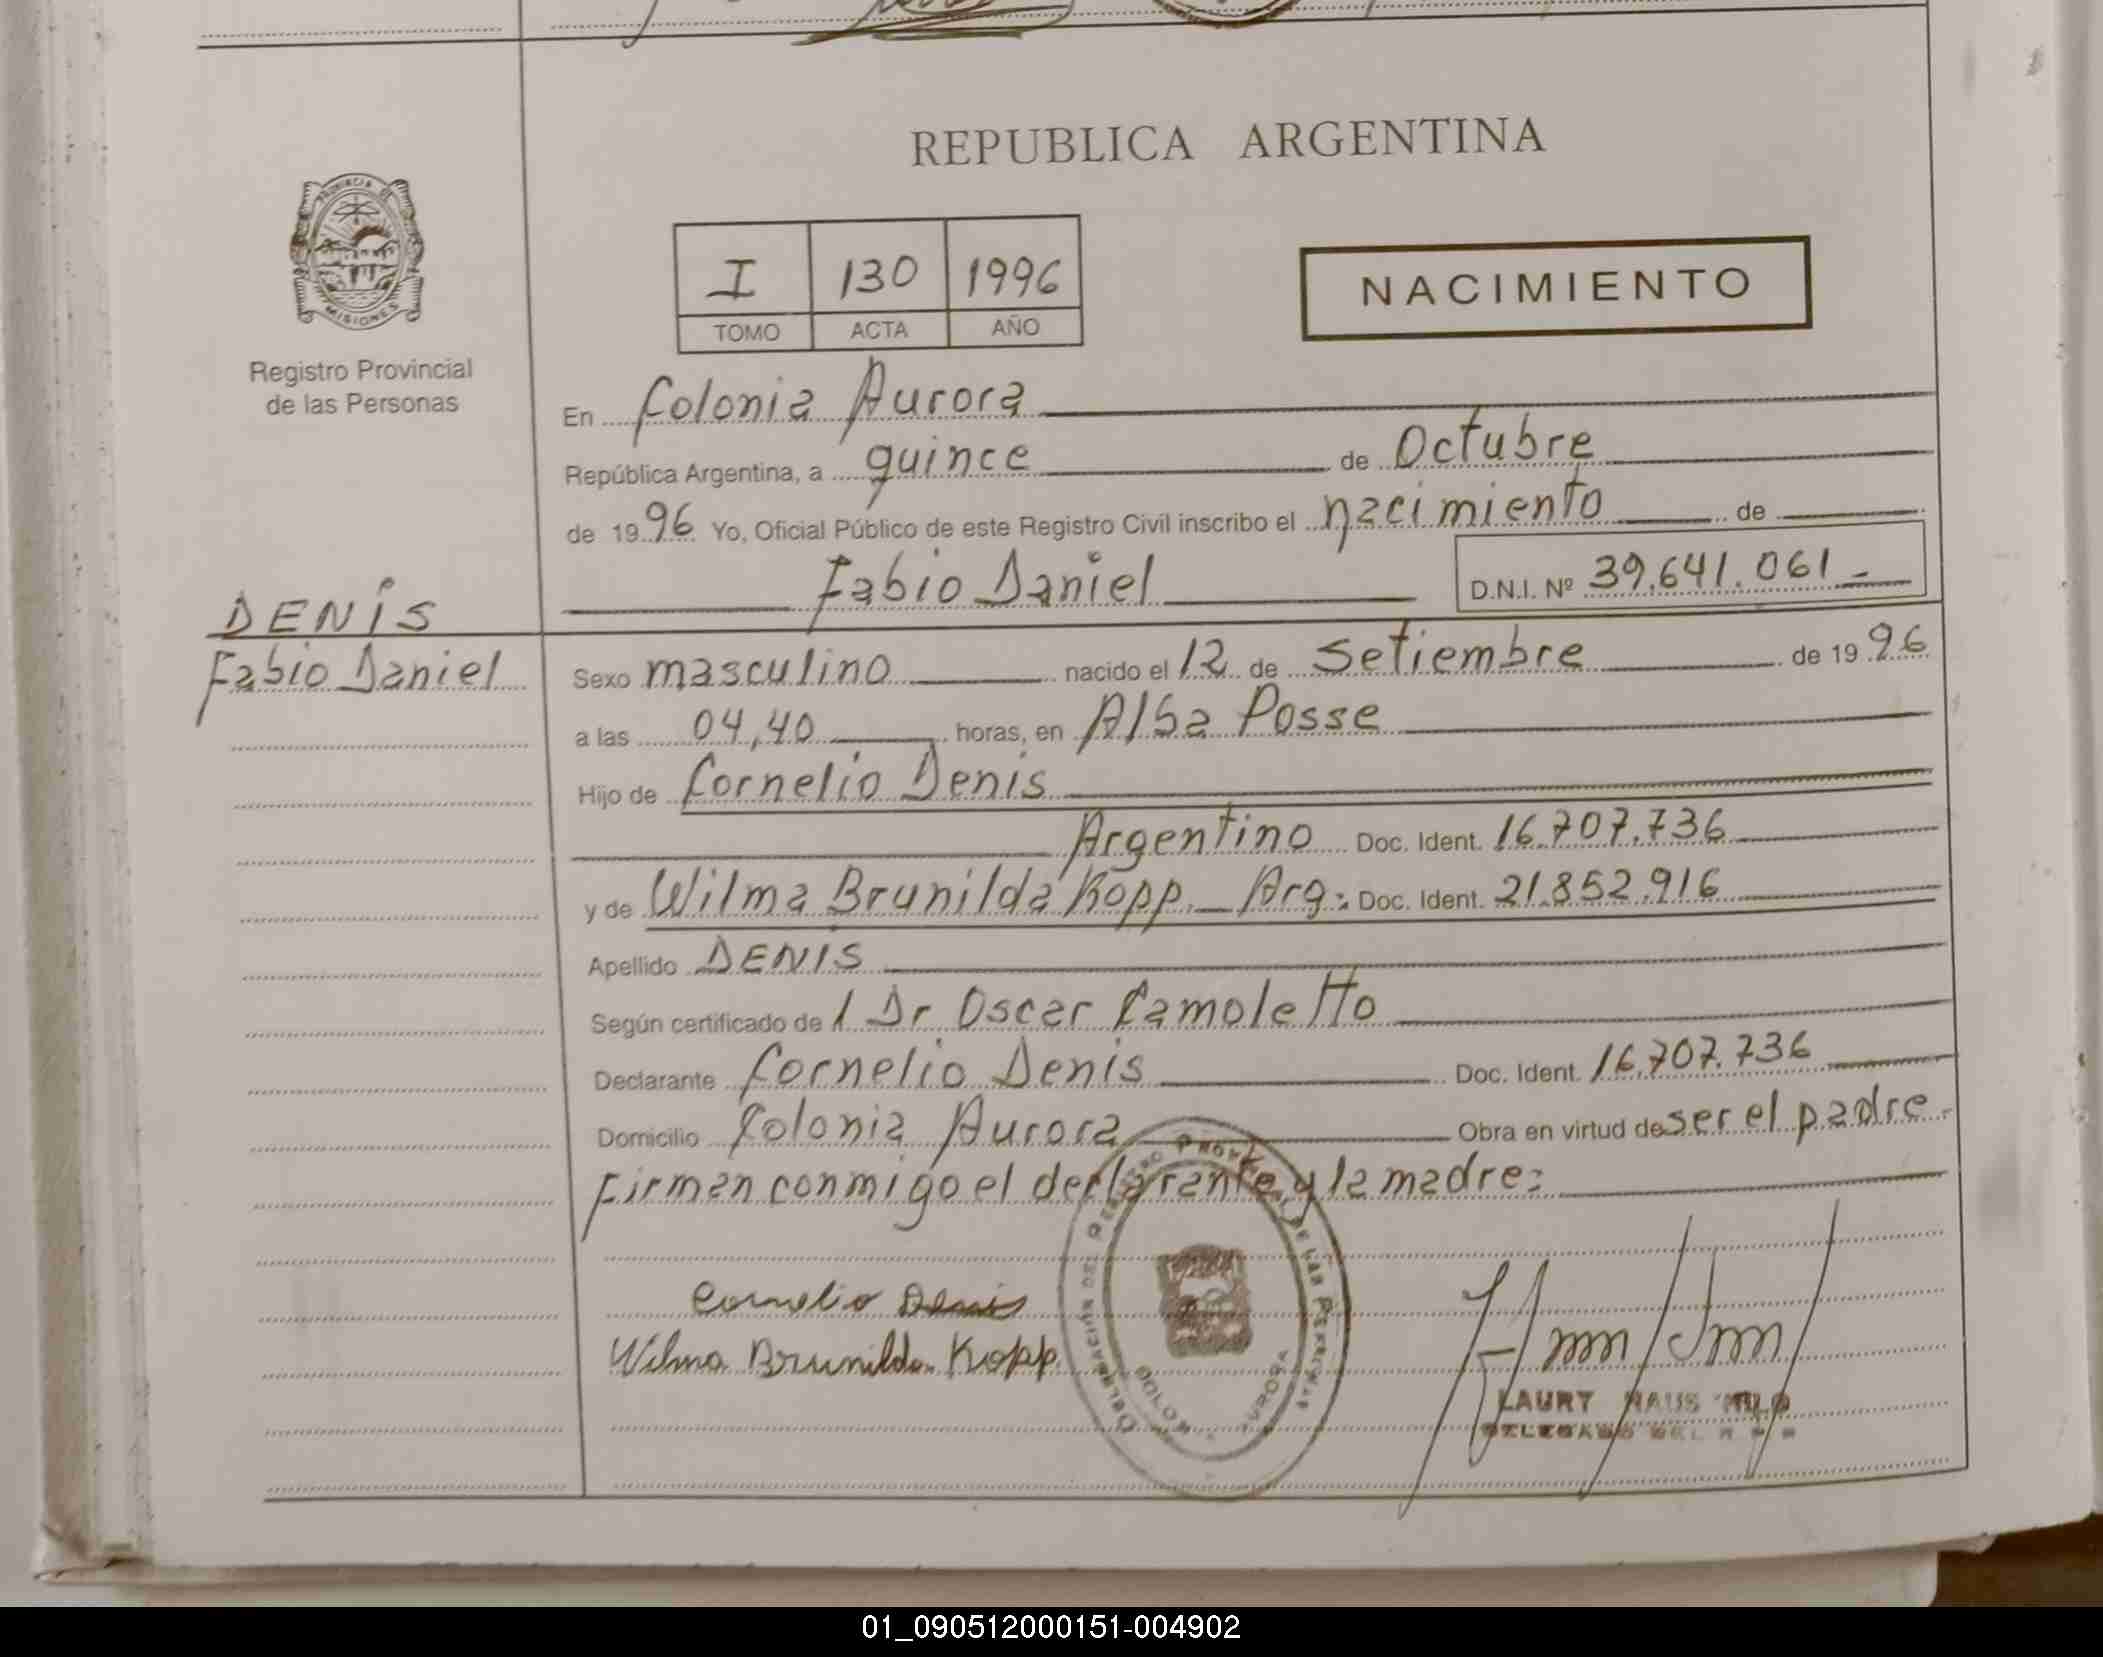 REPUBLICA ARGENTINA
PROVINCIA DE
MISIONES
Registro Provincial
de las Personas
I 130 1996
TOMO ACTA AÑO
NACIMIENTO
En Colonia Aurora
República Argentina, a quince de Octubre
de 1996 Yo, Oficial Público de este Registro Civil inscribo el nacimiento de
Fabio Daniel D.N.I. Nº 39.641.061-
DENIS
Fabio Daniel
Sexo masculino nacido el 12 de Setiembre de 1996
a las 04,40 horas, en Alba Posse
Hijo de Cornelio Denis
Argentino Doc. Ident. 16.707.736
y de Wilma Brunilda Kopp. Arg: Doc. Ident. 21.852.916
Apellido DENIS
Según certificado de l Dr Oscar Camoletto
Declarante Cornelio Denis Doc. Ident. 16.707.736
Domicilio Colonia Aurora Obra en virtud de ser el padre.
Firman conmigo el declarante y la madre:
Cornelio Denis
Wilma Brunilda Kopp.
DELEGACION DEL REGISTRO PROVINCIAL DE LAS PERSONAS
COLONIA AURORA
LAURY
DELEGADO DEL R P P
01_090512000151-004902